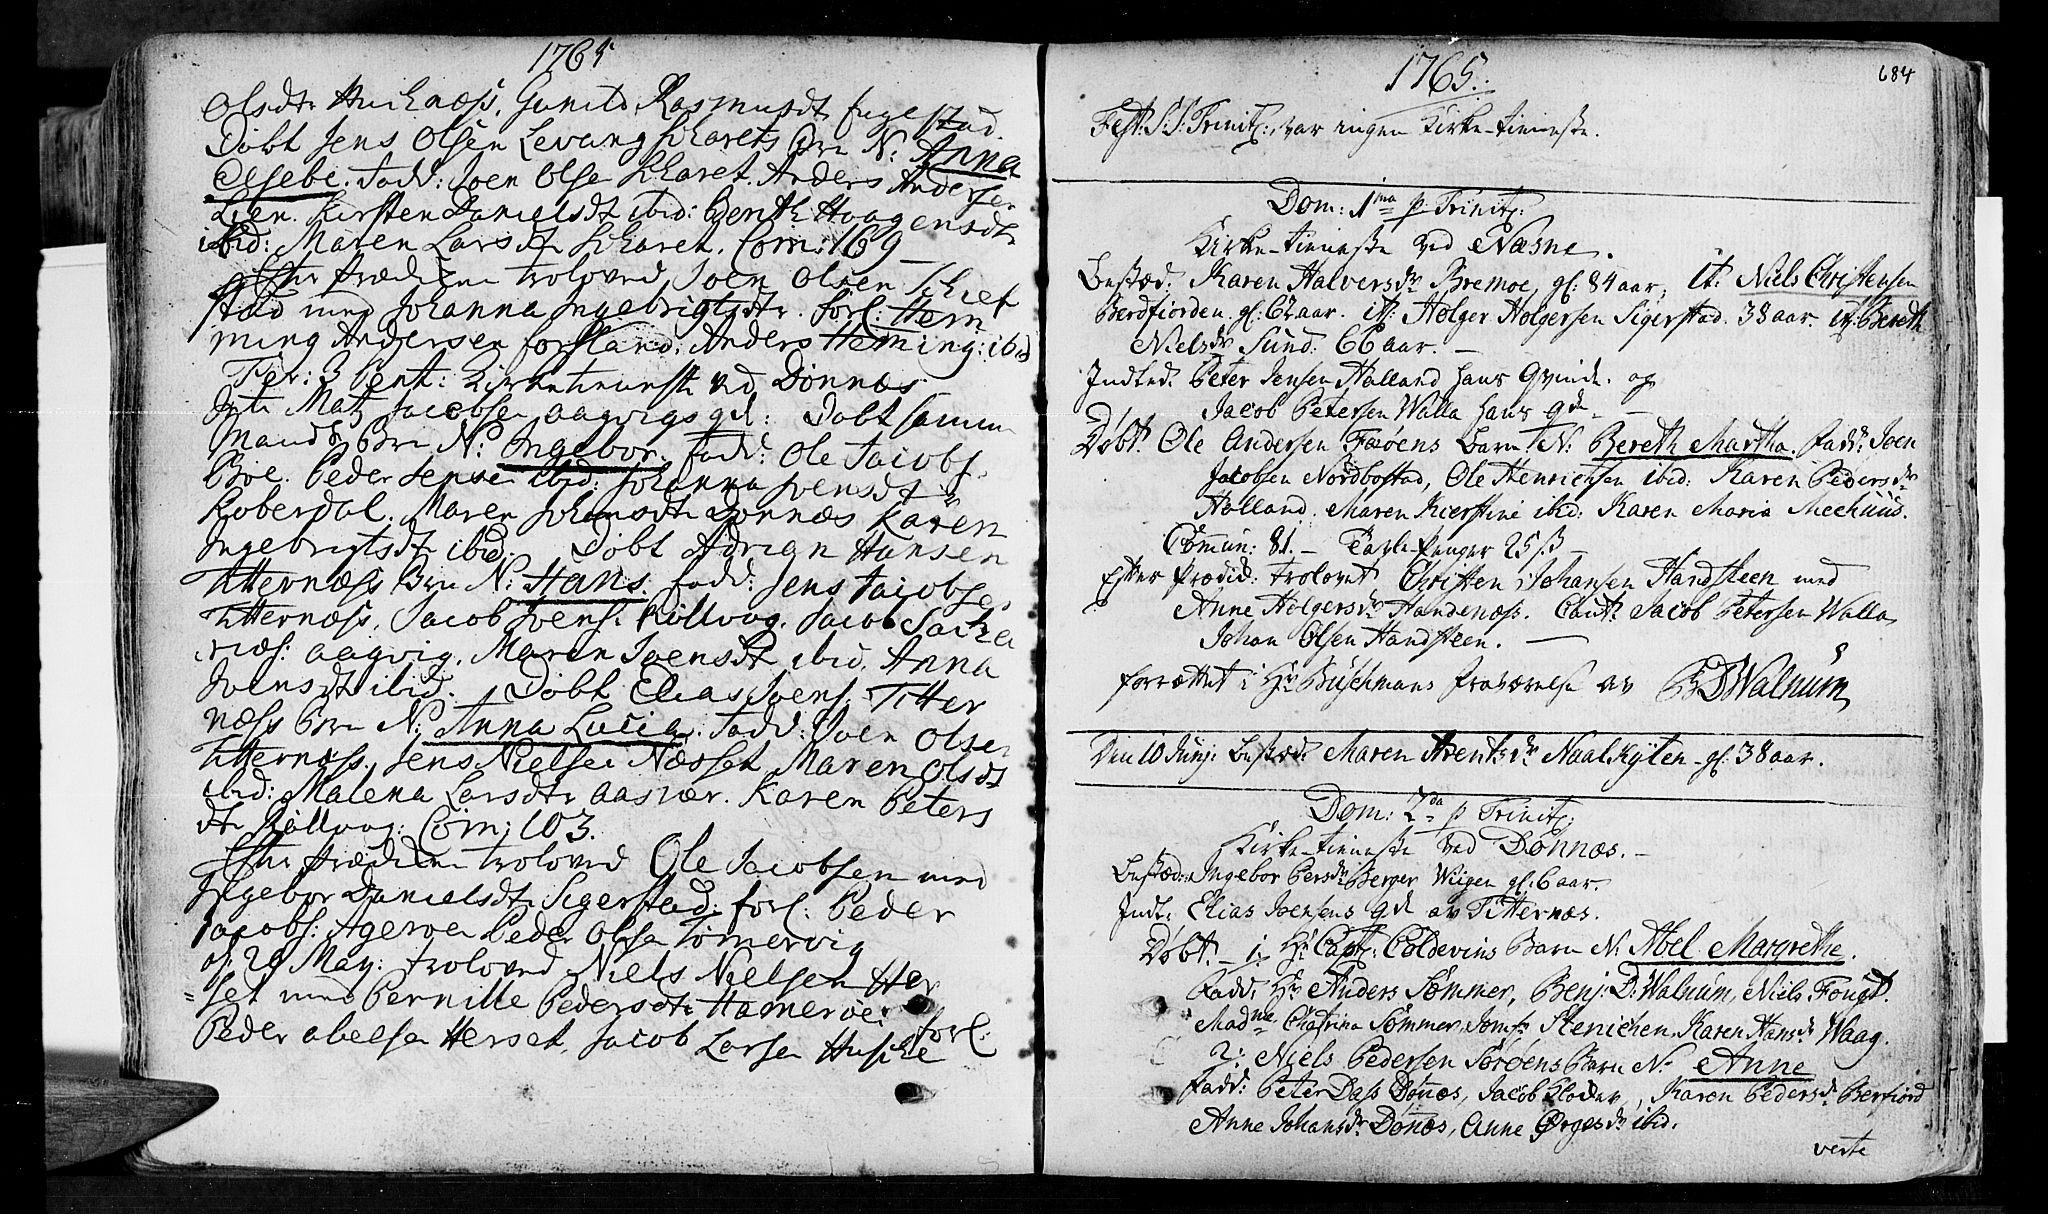 1765
Olsdtr Huuknæss, Gunild Rasmusdt fugestad.
Döbt Jens Olsen Levang skarets Brn N: Anna
Elsebe. fadd: Joen Olse skaret. Anders Anderse
Lien. Kirsten Danielsdt ibid: Berith Haagensdtr
ibid: Maren Larsdtr skaret. Com: 169 –
Efter prædiken troloved Joen Olsen
stad med Johanna Ingebrigtsdtr. forl: Hem
ming Andersen forsland, Anders Heming: ibid
Fer: 3 Pent: Kirketienniste ved Dönnæs
Int: Matz Jacobsen aagvigs qd: Döbt samme
Mands Brn N: Ingebor. fadd: Ole Jacobs
Böe. Peder Jensen ibid: Johanna Joensdt
Koberdal. Maren Johansdtr Dönnæs Karen
Ingebrigtsdtr ibid: Döbt Adrian Hansen
Titternæss Brn N: Hans. fadd: Jens Jacobse
Titternæss, Jacob Joens: Röllvog. Jacob Sacha
rias: aagvig. Maren Joensdt ibid. Anna
Joensdt ibid. Döbt Elias Joens: Titter
næss Brn N: Anna Lucia. fadd: Joen Olsen
Titternæss. Jens Nielsen Næsset Maren Olsdt
ibid: Malena Larsdtr aasvær. Karen Peters
dtr Röllvog: Com: 103.
Efter prædiken troloved Ole Jacobsen med
Ingebor Danielsdtr Sigerstad: forl: Peder
Jacobs: Ageröe Peder Olsen Tömervig
d: 20 May: troloved Niels Nielsen Her
set med Pernille Pedersdtr Hameröe: forl:
Peder abelsen Herset, Jacob Larsen
1765.
684
Fest: S: S: Trinit: var ingen Kirke-tieneste.
Dom: 1ma p Trinit:
Kirke-tieneste ved Næsne.
Bestæd: Karen Halversdr Bremoe, gl: 84 aar, it: Niels Christensen
Berdfiorden gl: 62 aar. it: Holger Holgersen Sigerstad. 38 aar. it: Bereth
Nielsdr Sund. 66 aar. –
Indted. Peter Jensen Halland hans Qvinde. og
Jacob Petersen Walla hans qde –
Döbt. Ole Andersen Færöens Barn N: Bereth Martha. fadd: Joen
Jacobsen Nordbostad, Ole Henrichsen ibid: Karen Pedersdr
Halland. Maren Kierstine ibid: Karen Maria Meehuus.
Commun: 81. – Tavle-Penger 25 ß –
Efter Prædik: trolovet Christen Johansen Handsteen med
Anne Holgersdr Handenæss. Caut: Jacob Petersen Walla
Johan Olsen Handsteen. –
forrættet i Hr Buschmans fraværelse av BDWalnum
Den 10 Junj: Bestæd: Maren Arentsdr Naalskyten – gl: 38 aar.
Dom: 2da p Trinit:
Kirke-tieneste ved Dönnæs. –
Bestæd: Ingebor Persdr Berger Wiigen gl: 6 aar.
Indt: Elias Joensens qd av Titternæs.
Döbt. – 1: Hr Capt: Coldevins Barn N: Abel Margrethe.
Fadd: Hr Anders Sömmer, Benj: D: Walnum, Niels Fougt.
Madme Chatrina Sömmer, Jomfr Stenichen, Karen Hansdr Waag.
2: Niels Pedersen Söröens Barn N: Anne
fadd: Peter Dass Dönæs, Jacob Kloder, Karen Pedersdr Berfiord
Anne Johansdr Dönæs, Anne Ørgesdr ibid.
verte